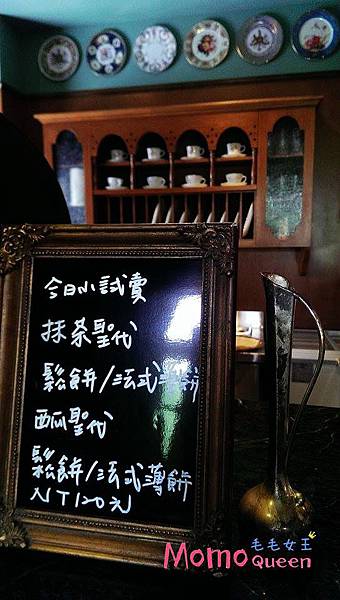 今日小試賣
抹茶聖代
鬆餅/法式薄餅
西瓜聖代
鬆餅/法式薄餅
NT120元
Momo 毛毛女王
Queen